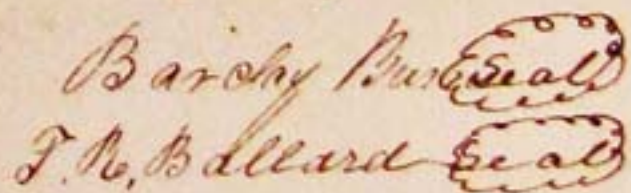 Barclay Bus Seal
T. R. Ballard Seal